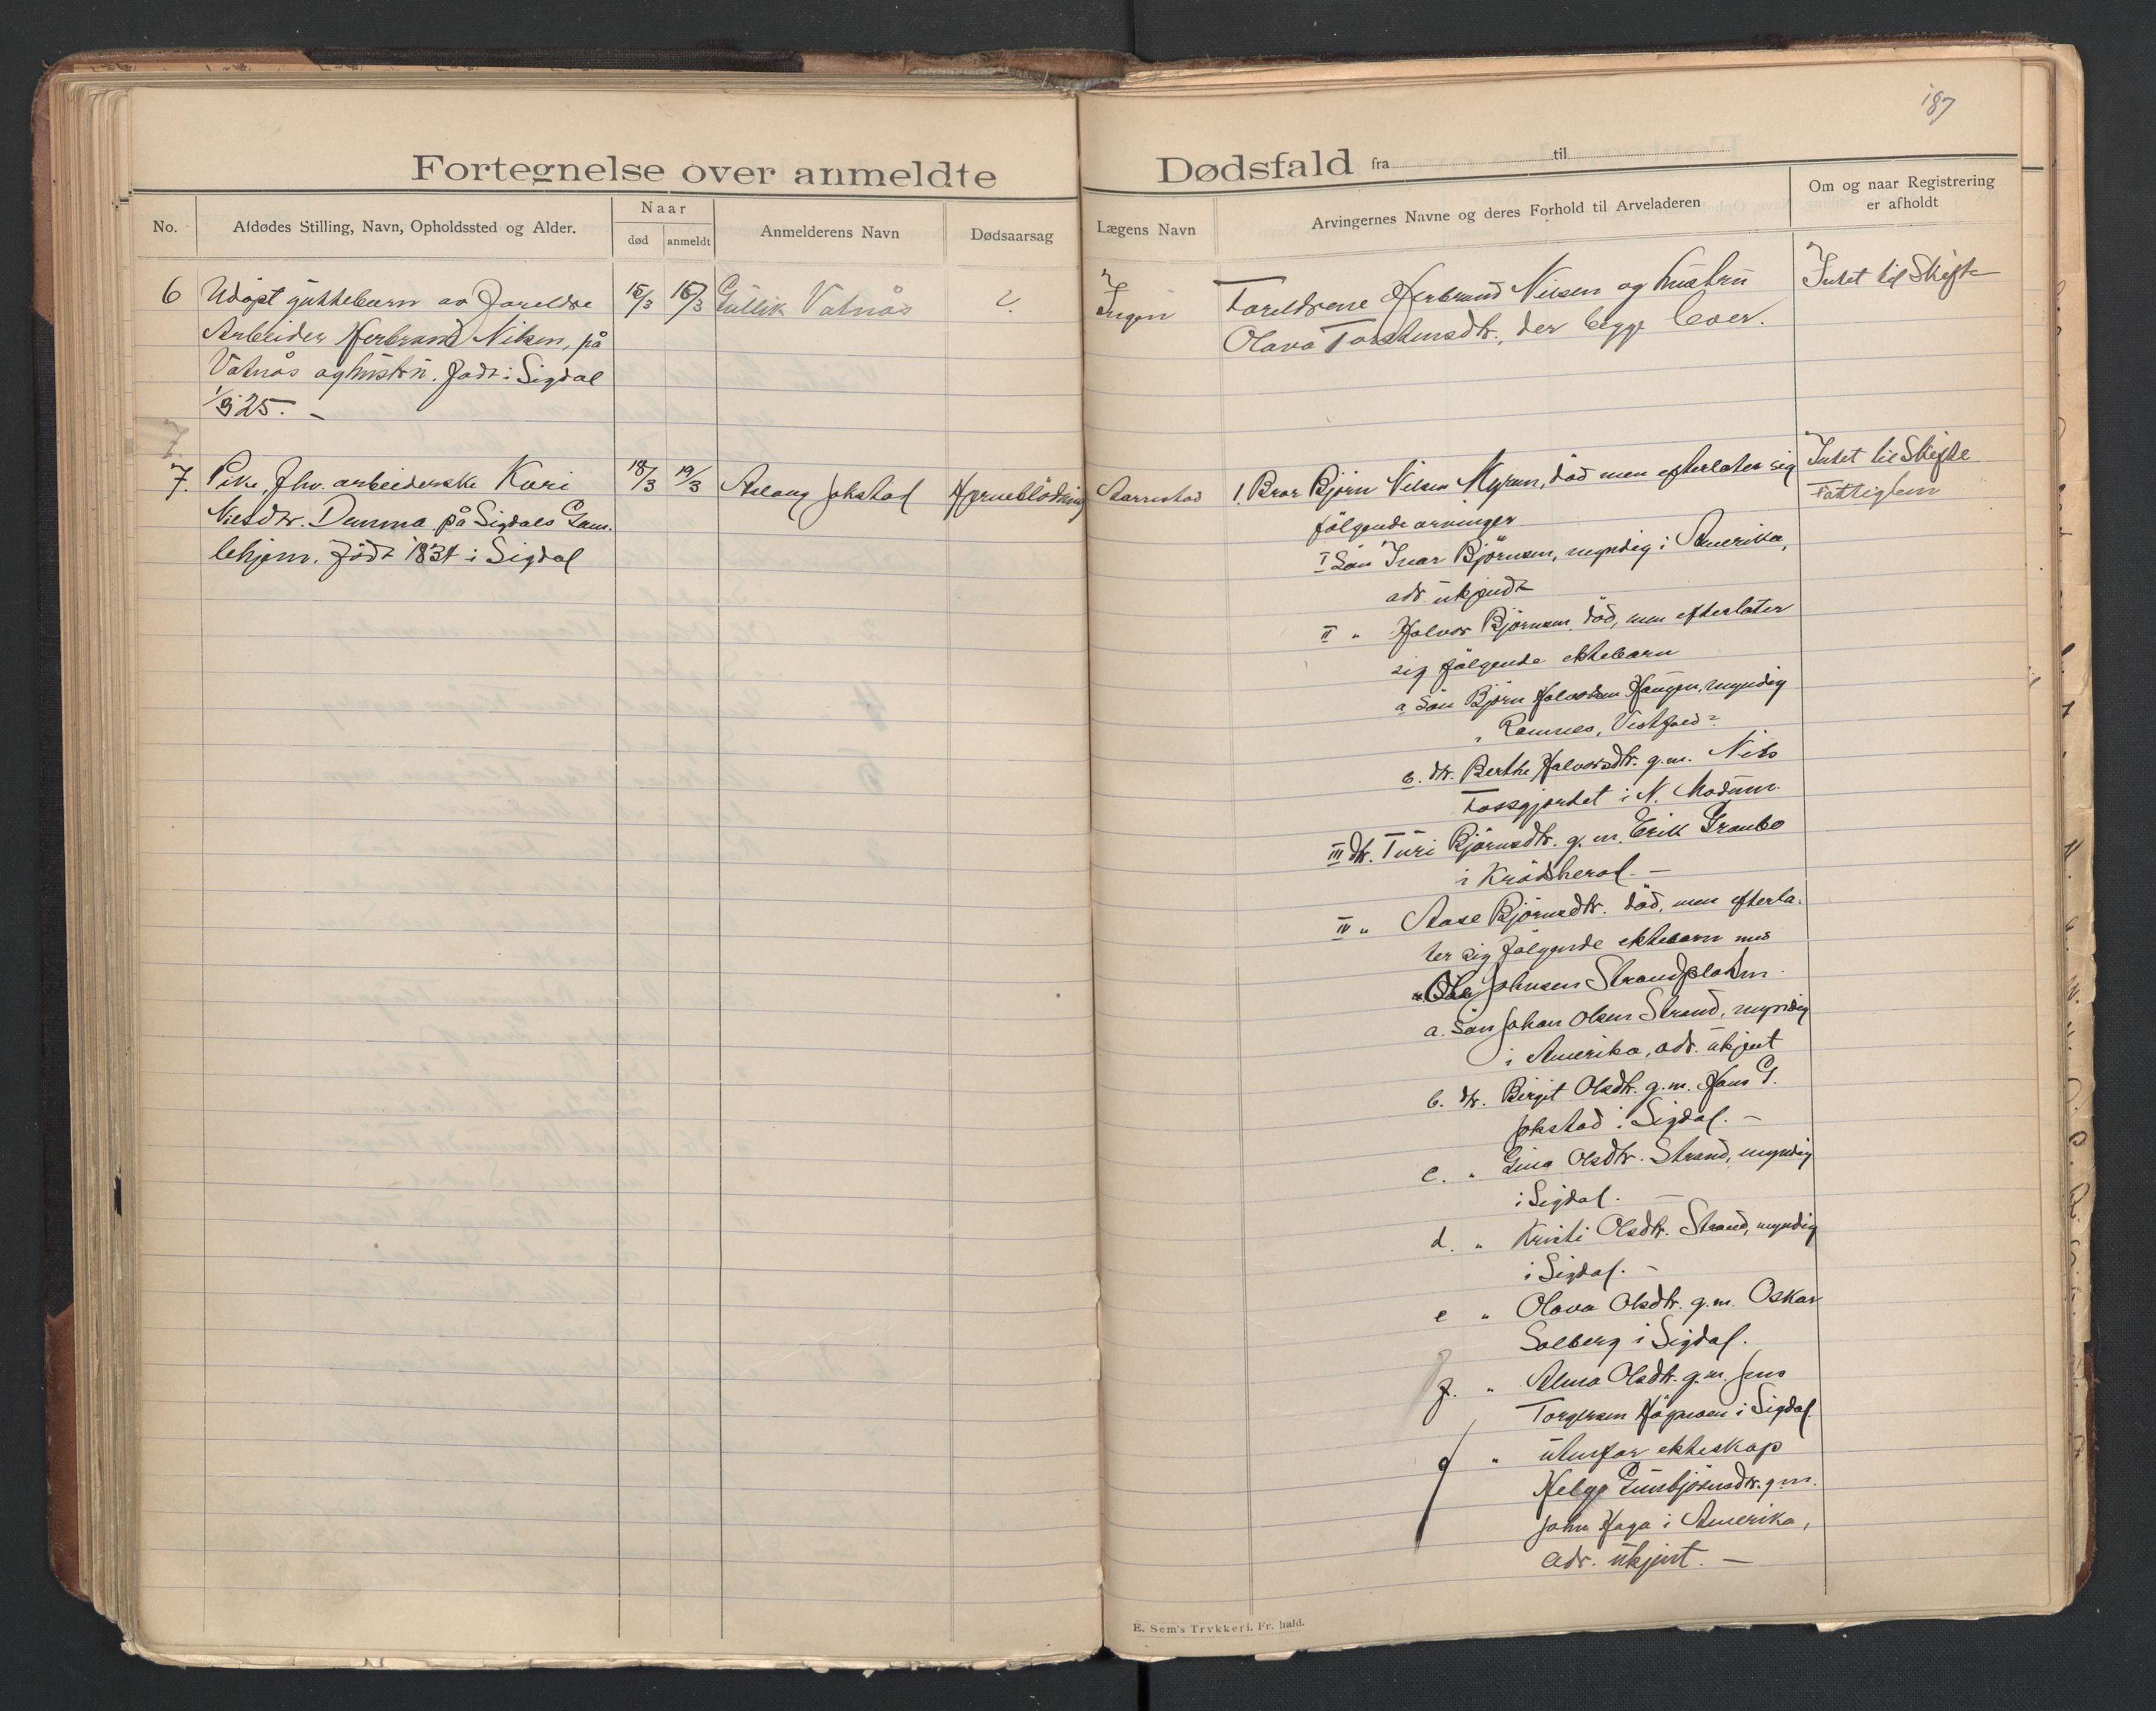 187
Fortegnelse over anmeldte Dødsfald fra til
No.
Afdødes Stilling, Navn, Opholdssted og Alder.
Naar
død
anmeldt
Anmelderens Navn
Dødsaarsag
Lægens Navn
Arvingernes Navne og deres Forhold til Arveladeren
Om og naar Registrering
er afholdt
6
Udøpt guttebarn av foreldre
Arbeider Herbrand Nilsen, på
Vatnås og hustru. født i Sigdal
1/3 25. –
15/3
16/3
Gullik Vatnås
?
Ingen
Foreldrene Herbrand Nilsen og hustru
Olava Torstensdtr., der begge lever.
Intet til Skifte
7.
Pike, fhv. arbeiderske Kari
Nilsdtr. Demma på Sigdals Gam-
lehjem. født 1834 i Sigdal
18/3
19/3
Aslaug Jokstad
Hjerneblödning
Aarrestad
1. Bror Björn Nilsen Myran, död men efterlater sig
fölgende arvinger
I Sön Ivar Björnsen, myndig i Amerika,
adr. ukjendt
II " Halvor Björnsen död, men efterlater
sig fölgende ektebarn
a Sön Björn Halvorsen Haugen, myndig
i Ramnes, Vestfold?
b. dtr. Berthe Halvorsdtr. g.m. Nils
Fossgjordet i N. Modum.
III dtr. Turi Björnsdtr. g.m. Erik Granbo
i Krödsherad. –
IV " Aase Björnsdtr. död, men efterla-
ter sig fölgende ektebarn med
Ole Johnsen Strandpladsen.
a. Sön Johan Olsen Strand, myndig
i Amerika, adr. ukjent
b. dtr. Birgit Olsdtr. g.m. Hans G.
Jokstad i Sigdal. –
c. " Gina Olsdtr. Strand, myndig
i Sigdal. –
d. " Kristi Olsdtr. Strand, myndig
i Sigdal. –
e " Olava Olsdtr. g.m. Oskar
Solberg i Sigdal.
f. " Alma Olsdtr. g.m. Jens
Torgersen Högmoen i Sigdal.
g " utenfor ekteskap
Helge Gunbjörnsdtr. g.m.
John Haga i Amerika,
adr. ukjent. –
Intet til Skifte
Fattiglem
E. Sem's Trykkeri. Fr. hald.